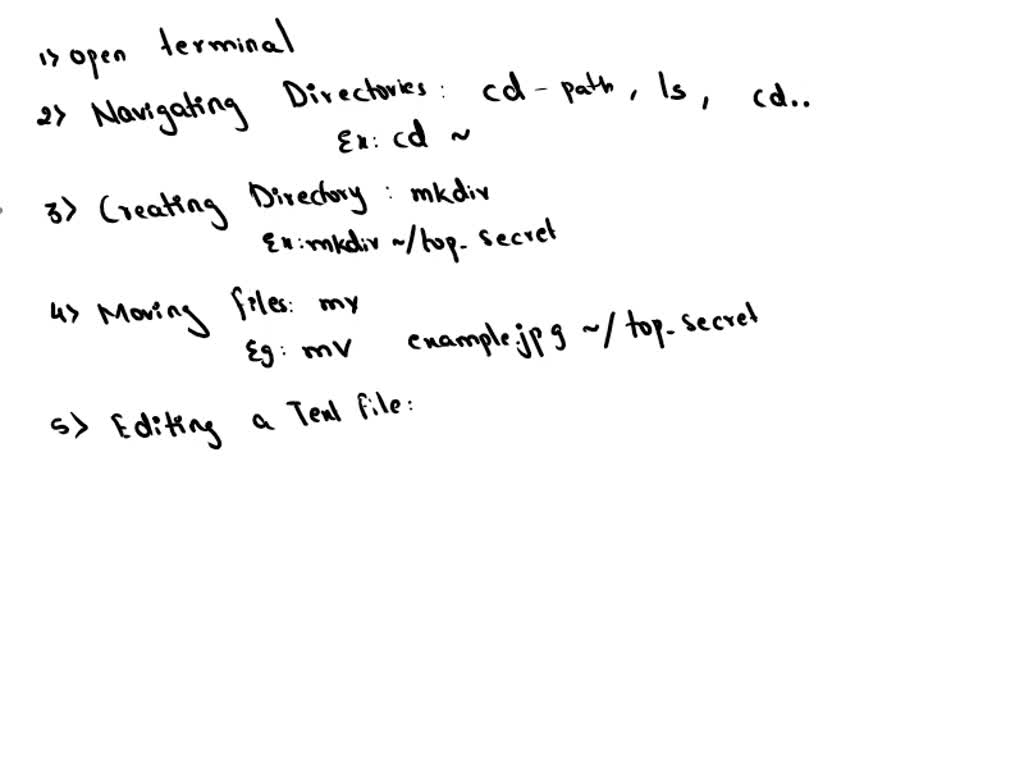 1> open terminal
2> Navigating Directories: cd - path, ls, cd..
Ex: cd ~
3> Creating Directory: mkdir
Ex: mkdir ~/top_secret
4> Moving files: mv
Eg: mv example.jpg ~/top_secret
5> Editing a Text file: